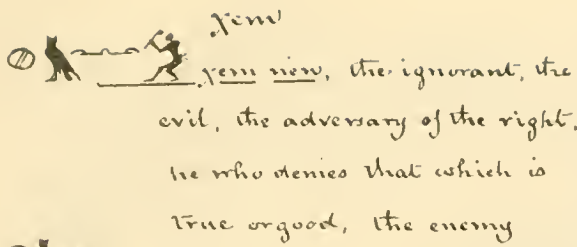 χem
χem nen, the ignorant, the
evil, the adversary of the right,
he who denies that which is
true or good, the enemy